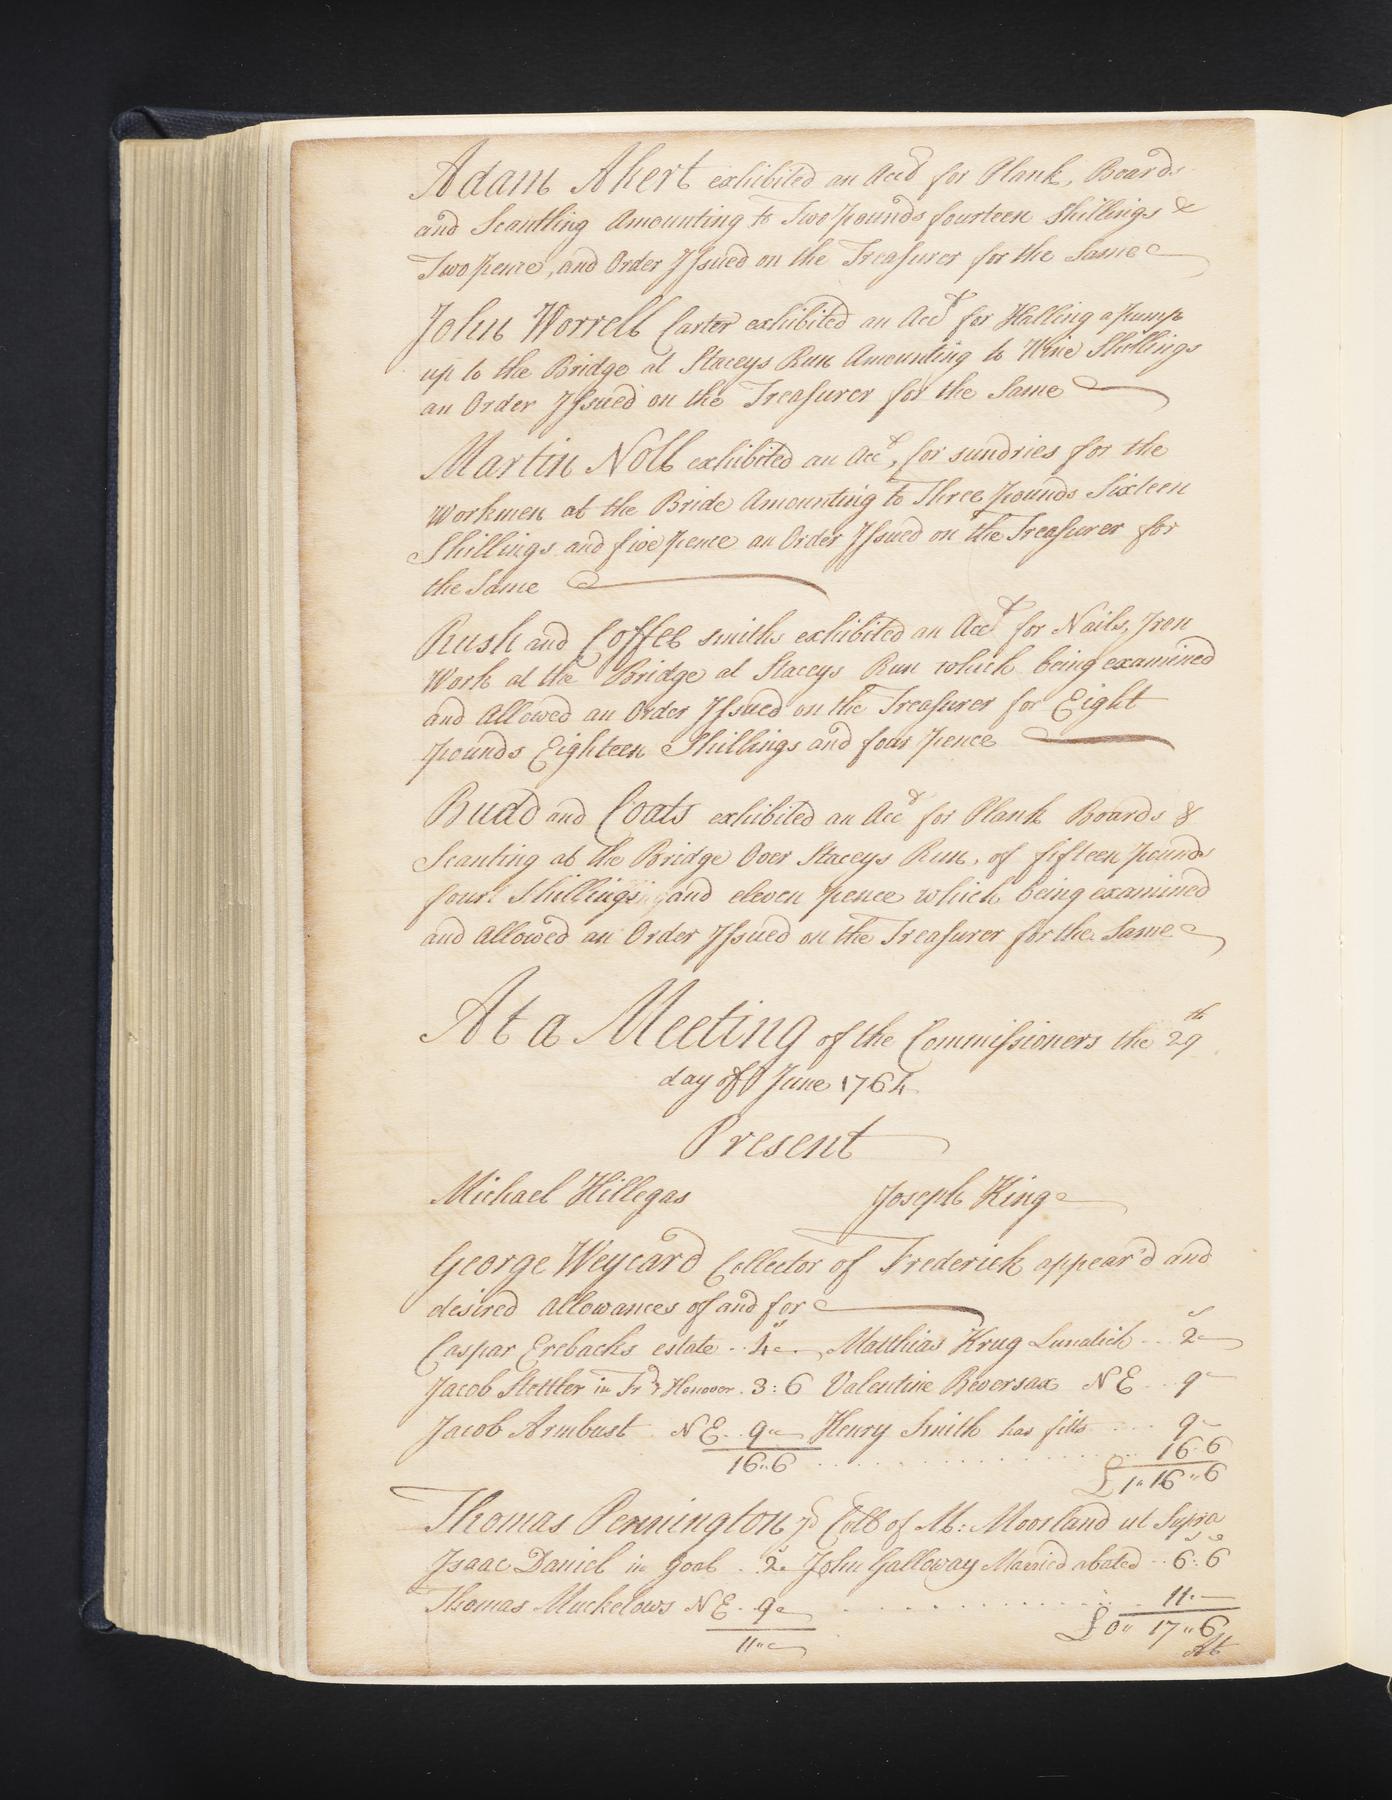 Adam Akert exhibited an Acct for Plank, Boards
and Scantling Amounting to Two pounds fourteen Shillings &
Two pence, and Order Issued on the Treasurer for the Same
John Worrell Carter exhibited an Acct for Halling a pump
up to the Bridge at Staceys Run Amounting to Nine Shillings
an Order Issued on the Treasurer for the Same
Martin Noll exhibited an Acct, for sundries for the
Workmen at the Bride Amounting to Three pounds Sixteen
Shillings and five pence an Order Issued on the Treasurer for
the Same
Rush and Coffee smiths exhibited an Acct for Nails, Iron
Work at the Bridge at Staceys Run which being examined
and Allowed an Order Issued on the Treasurer for Eight
pounds Eighteen Shillings and four pence
Budd and Coats exhibited an Acct for Plank Boards &
Scanting at the Bridge Over Staceys Run, of fifteen pounds
four Shillings and eleven pence which being examined
and Allowed an Order Issued on the Treasurer for the Same
At a Meeting of the Commissioners the 29th
day of June 1764
Present
Michael Hillegas Joseph King
George Weycard Collector of Frederick appear'd and
desired Allowances of and for
Caspar Erebacks estate .. 4s Matthias Krug Lunatick .. 2s
Jacob Stettler in Hanover . 3:6 Valentine Beversax NE .. 9
Jacob Armbust NE .. 9 Henry Smith has fitts .... 9
16..6 ............ 16 6
£1"16"6
Thomas Pennington Coll of M: Moorland ut Supra
Isaac Daniel in Goal . 2s John Galloway Married abated .. 6:6
Thomas Muckelows NE . 9 ............ 11
11 £0" 17"6
At